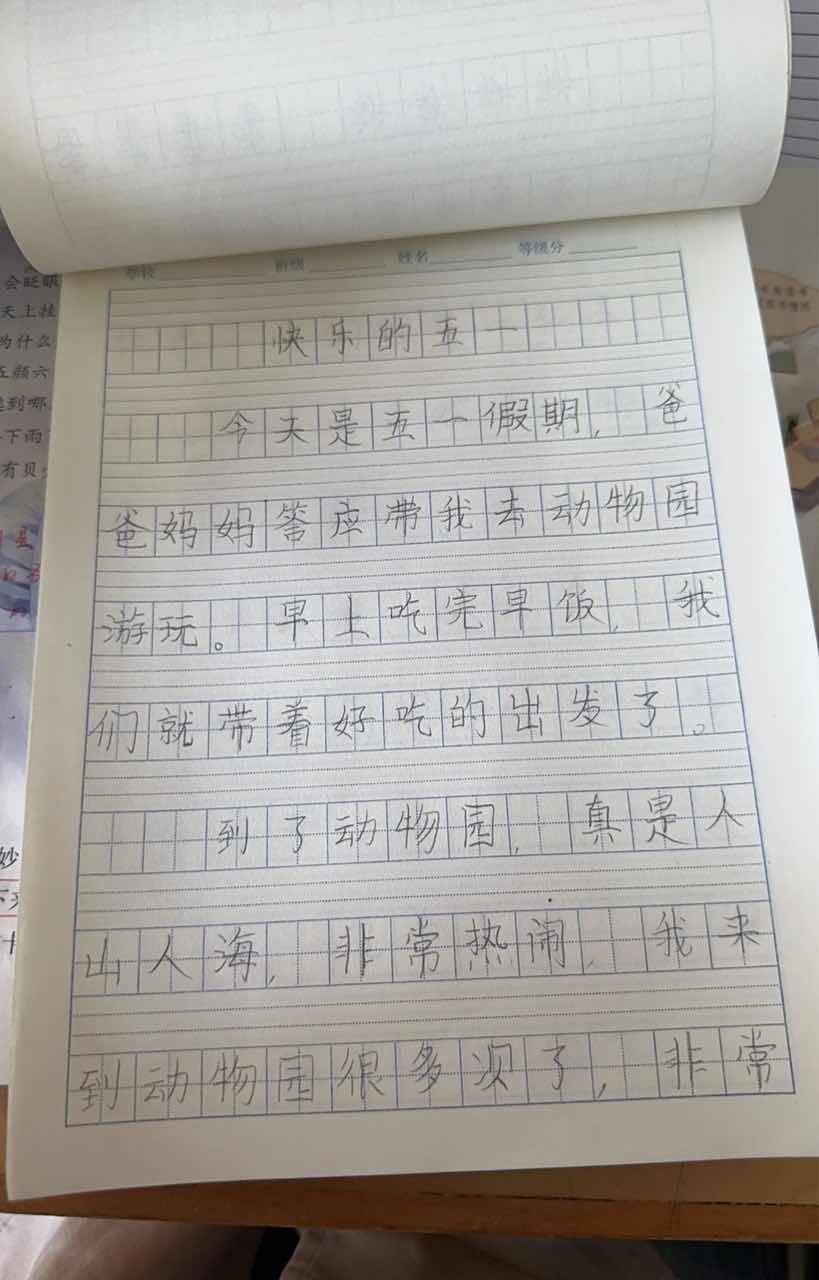 学校 班级 姓名 等级分
快乐的五一
今天是五一假期，爸
爸妈妈答应带我去动物园
游玩。早上吃完早饭，我
们就带着好吃的出发了。
到了动物园，真是人
山人海，非常热闹，我来
到动物园很多次了，非常
会眨眼
天上挂
为什么
五颜六
到哪
下雨
有贝
妙